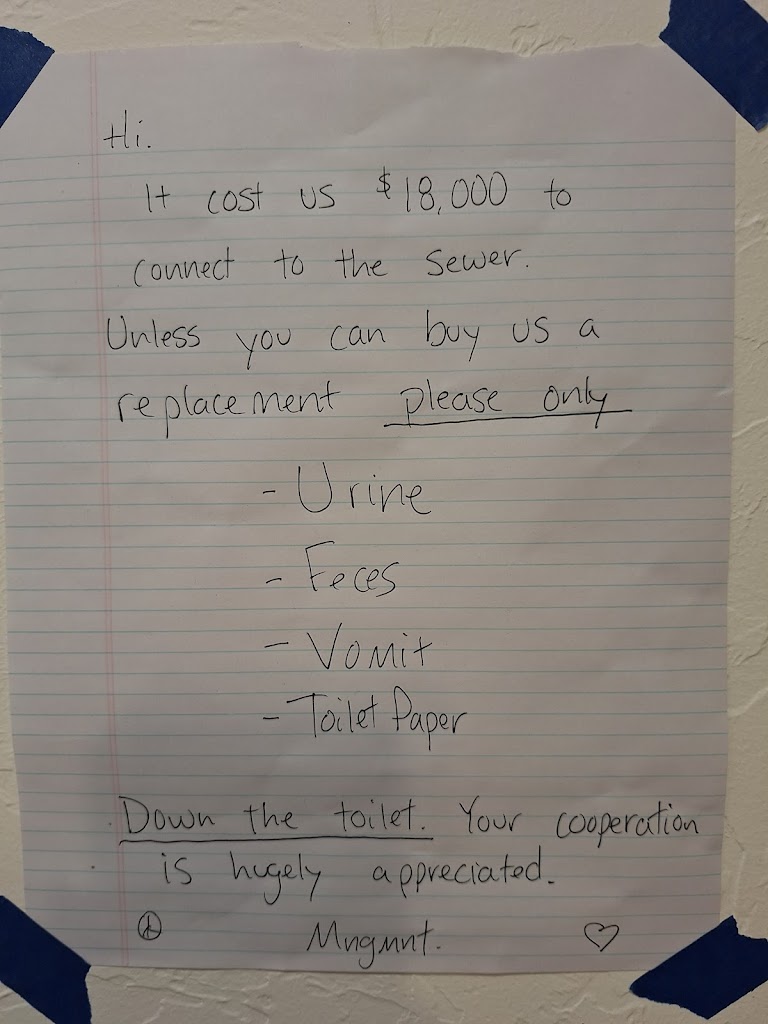 Hi.
It cost us $18,000 to
connect to the sewer.
Unless you can buy us a
replacement please only
- Urine
- Feces
- Vomit
- Toilet Paper
Down the toilet. Your cooperation
is hugely appreciated.
Mngmnt.